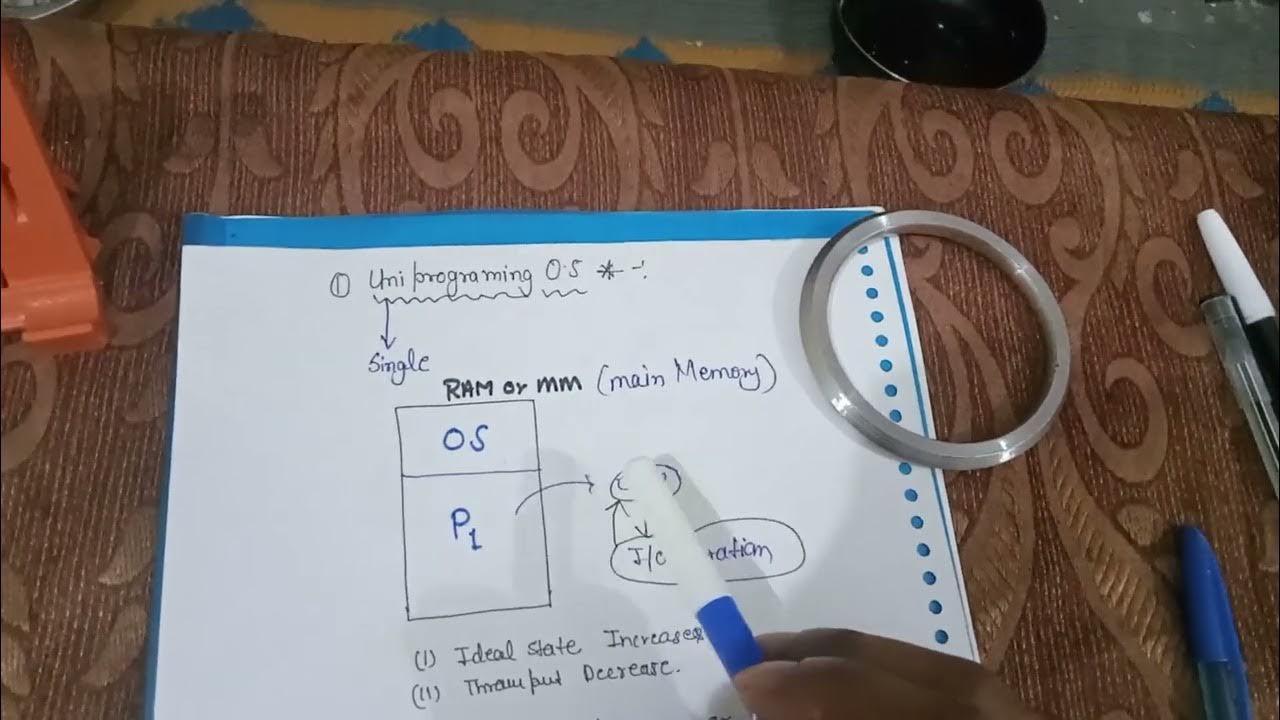 ① Uniprograming O.S * -:
Single
RAM or MM (main Memory)
OS
P1
I/O
(I) Ideal state Increases
(II) Throu put Decrease.